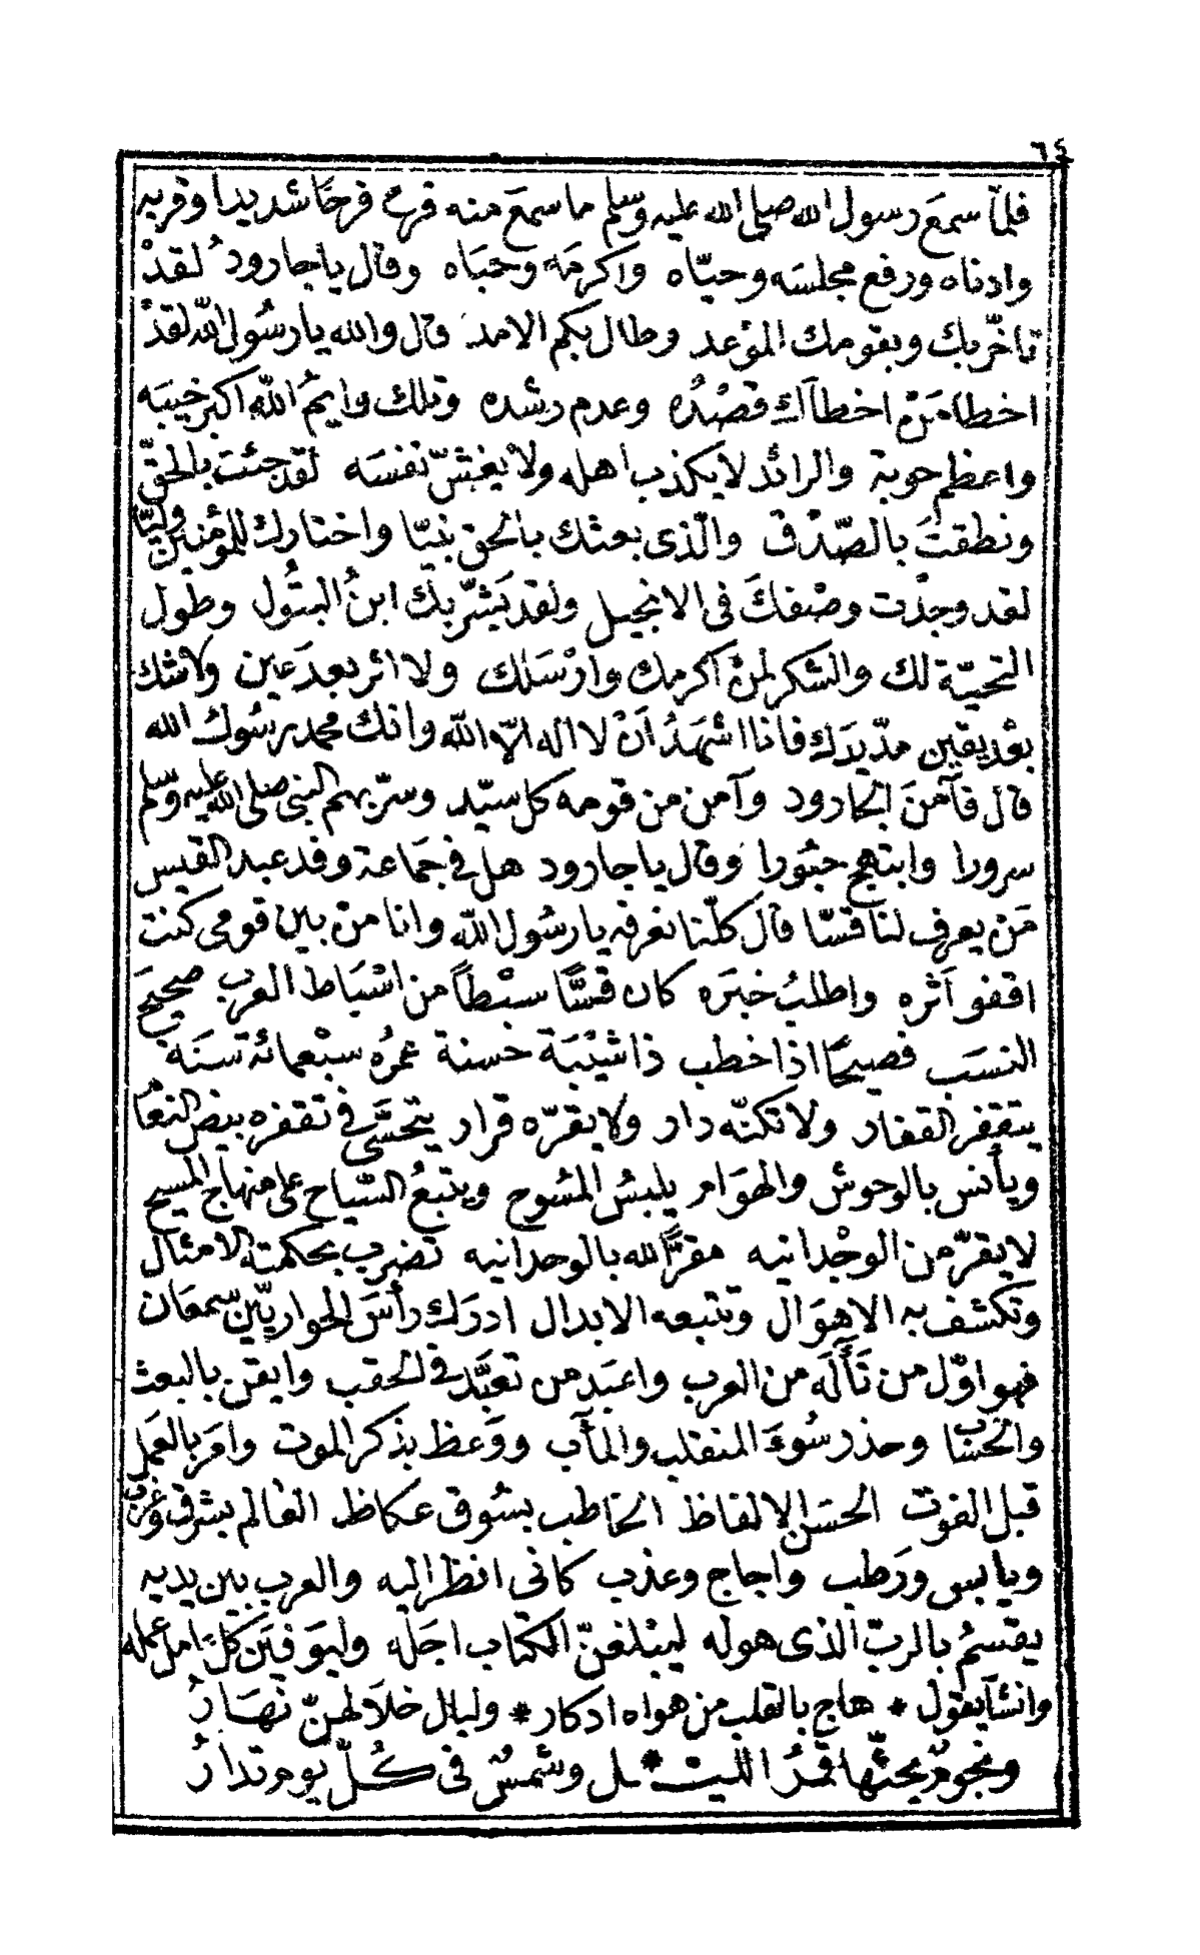 ٦٤
فلمّا سمعَ رسول الله صلى الله عليه وسلم ما سمعَ منه فرح فرحًا شديدا وقربه
وادناه ورفع مجلسَه وحيّاه واكرمَه وحبَاه وقال يا جارودُ لقدْ
تاخّر بك وبقومك الموْعد وطال بكم الامد قال والله يا رسُول اللّه لقدْ
اخطا مَنْ اخطآك قصْدُه وعدم رشده وتلك وايمُ اللّه اكبر خيبَه
واعظم حوبة والرائد لا يكذب اهله ولا يغشّ نفسَه لقد جئت بالحقّ
ونطقتَ بالصّدْق والّذى بعثك بالحق نبيّا واختارك للمؤمنين وليّا
لقد وجدْت وصْفكَ فى الانجيل ولقد بَشّر بك ابنُ البتُول وطول
التحيّة لك والشكر لمنْ اكرمك وارْسَلك ولا اثر بعدَ عين ولا شك
بعْد يقين مدّ يدَك فانا اشهَدُ اَنْ لا اله الاّ اللّه وانك محمد رسُول الله
قال فآمنَ الجارود وآمن من قومه كل سيّد وسرّ بهم النبى صلى الله عليه وسلم
سرورا وابتهج حبُورا وقال يا جارود هل فى جمَاعة وفد عبد القيس
مَن يعرف لنا قسّا قال كلّنا نعرفه يا رسُول اللّه وانا منْ بين قومى كنت
اقفو اَثره واطلبُ خبَره كان قسًّا سبْطاً من اسْبَاط العرب صحيحَ
النسَب فصيحًا اذا خطب ذا شيْبَة حسنة عمرُه سبْعمائة سنَة
يتقفر القفار ولا تكنّه دار ولا يقرّه قرار يتحسَّى فى تقفره بيض النعا
ويأنس بالوحوش والهوَام يلبسُ المسُوح ويتبعُ السّياح على منهاج المسيح
لا يفترّ من الوحْدانيه مقرًّا لله بالوحدانيه تضرب بحكمته الامثال
وتكشف به الاهوَال وتتبعه الابدال ادرَك رأسَ الحواريّين سمعَان
فهو اوّل من تَأَلَّه من العرب واعبَد من تعبَّد فى الحقب وايقن بالبعث
والحسَاب وحذر سُوءَ المنقلب والمآب ووَعظ بذكر الموت وامَر بالعمَل
قبل الفوت الحسَن الالفاظ الخاطب بسُوق عكاظ العالم بشرق وغرْب
ويابس ورَطب واجاج وعذب كانى انظر اليه والعرب بين يديه
يقسمُ بالربّ الذى هو له ليبْلغنّ الكتاب اجَله وليوَفيَن كلّ عَامل عمله
وانشأ يقول * هاج بالقلب من هواه ادكار * وليال خلاَلهنّ نهَارُ
ونجومٌ يحثّها قمَرُ الليْـ * ـل وشمسٌ فى كُلّ يوم تدارُ